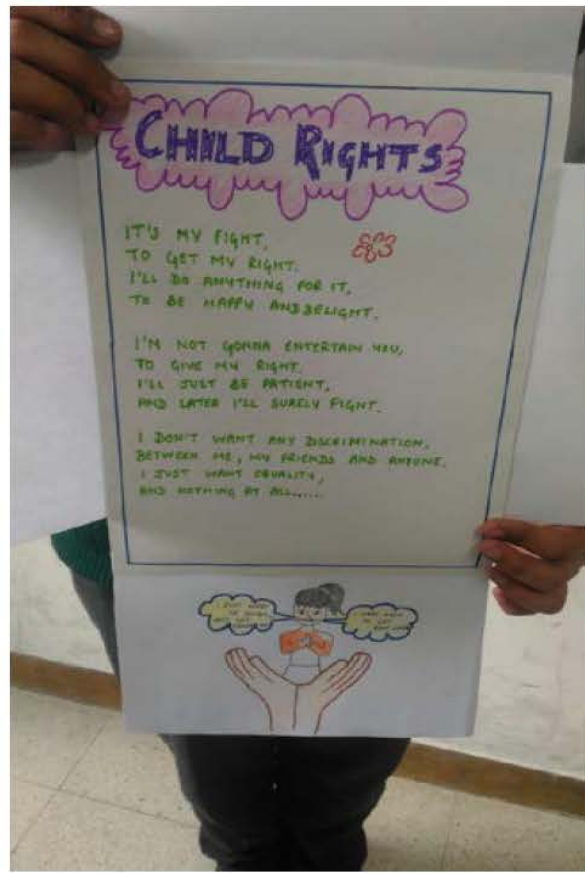 CHILD RIGHTS
IT'S MY FIGHT,
TO GET MY RIGHT.
I'LL DO ANYTHING FOR IT,
TO BE HAPPY AND DELIGHT.
I'M NOT GONNA ENTERTAIN YOU,
TO GIVE MY RIGHT.
I'LL JUST BE PATIENT,
AND LATER I'LL SURELY FIGHT.
I DON'T WANT ANY DISCRIMINATION,
BETWEEN ME, MY FRIENDS AND ANYONE.
I JUST WANT EQUALITY,
AND NOTHING AT ALL.....
I JUST WANT